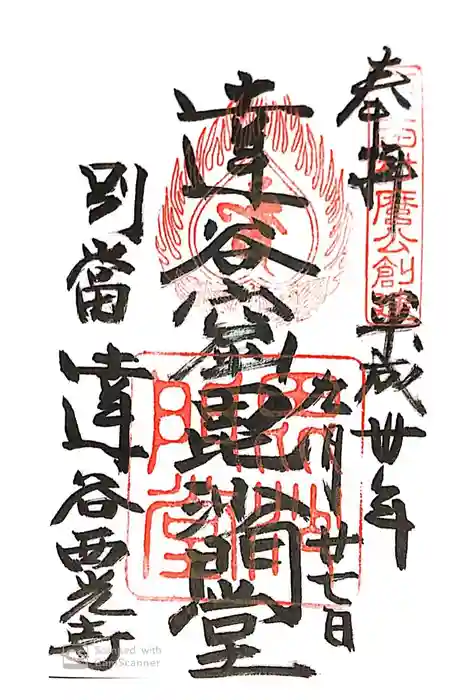 奉拝 平成卅年
九月廿七日
達谷窟毘沙門堂
別當 達谷西光寺
麿公創建
毘沙門堂
Scanned with
CamScanner